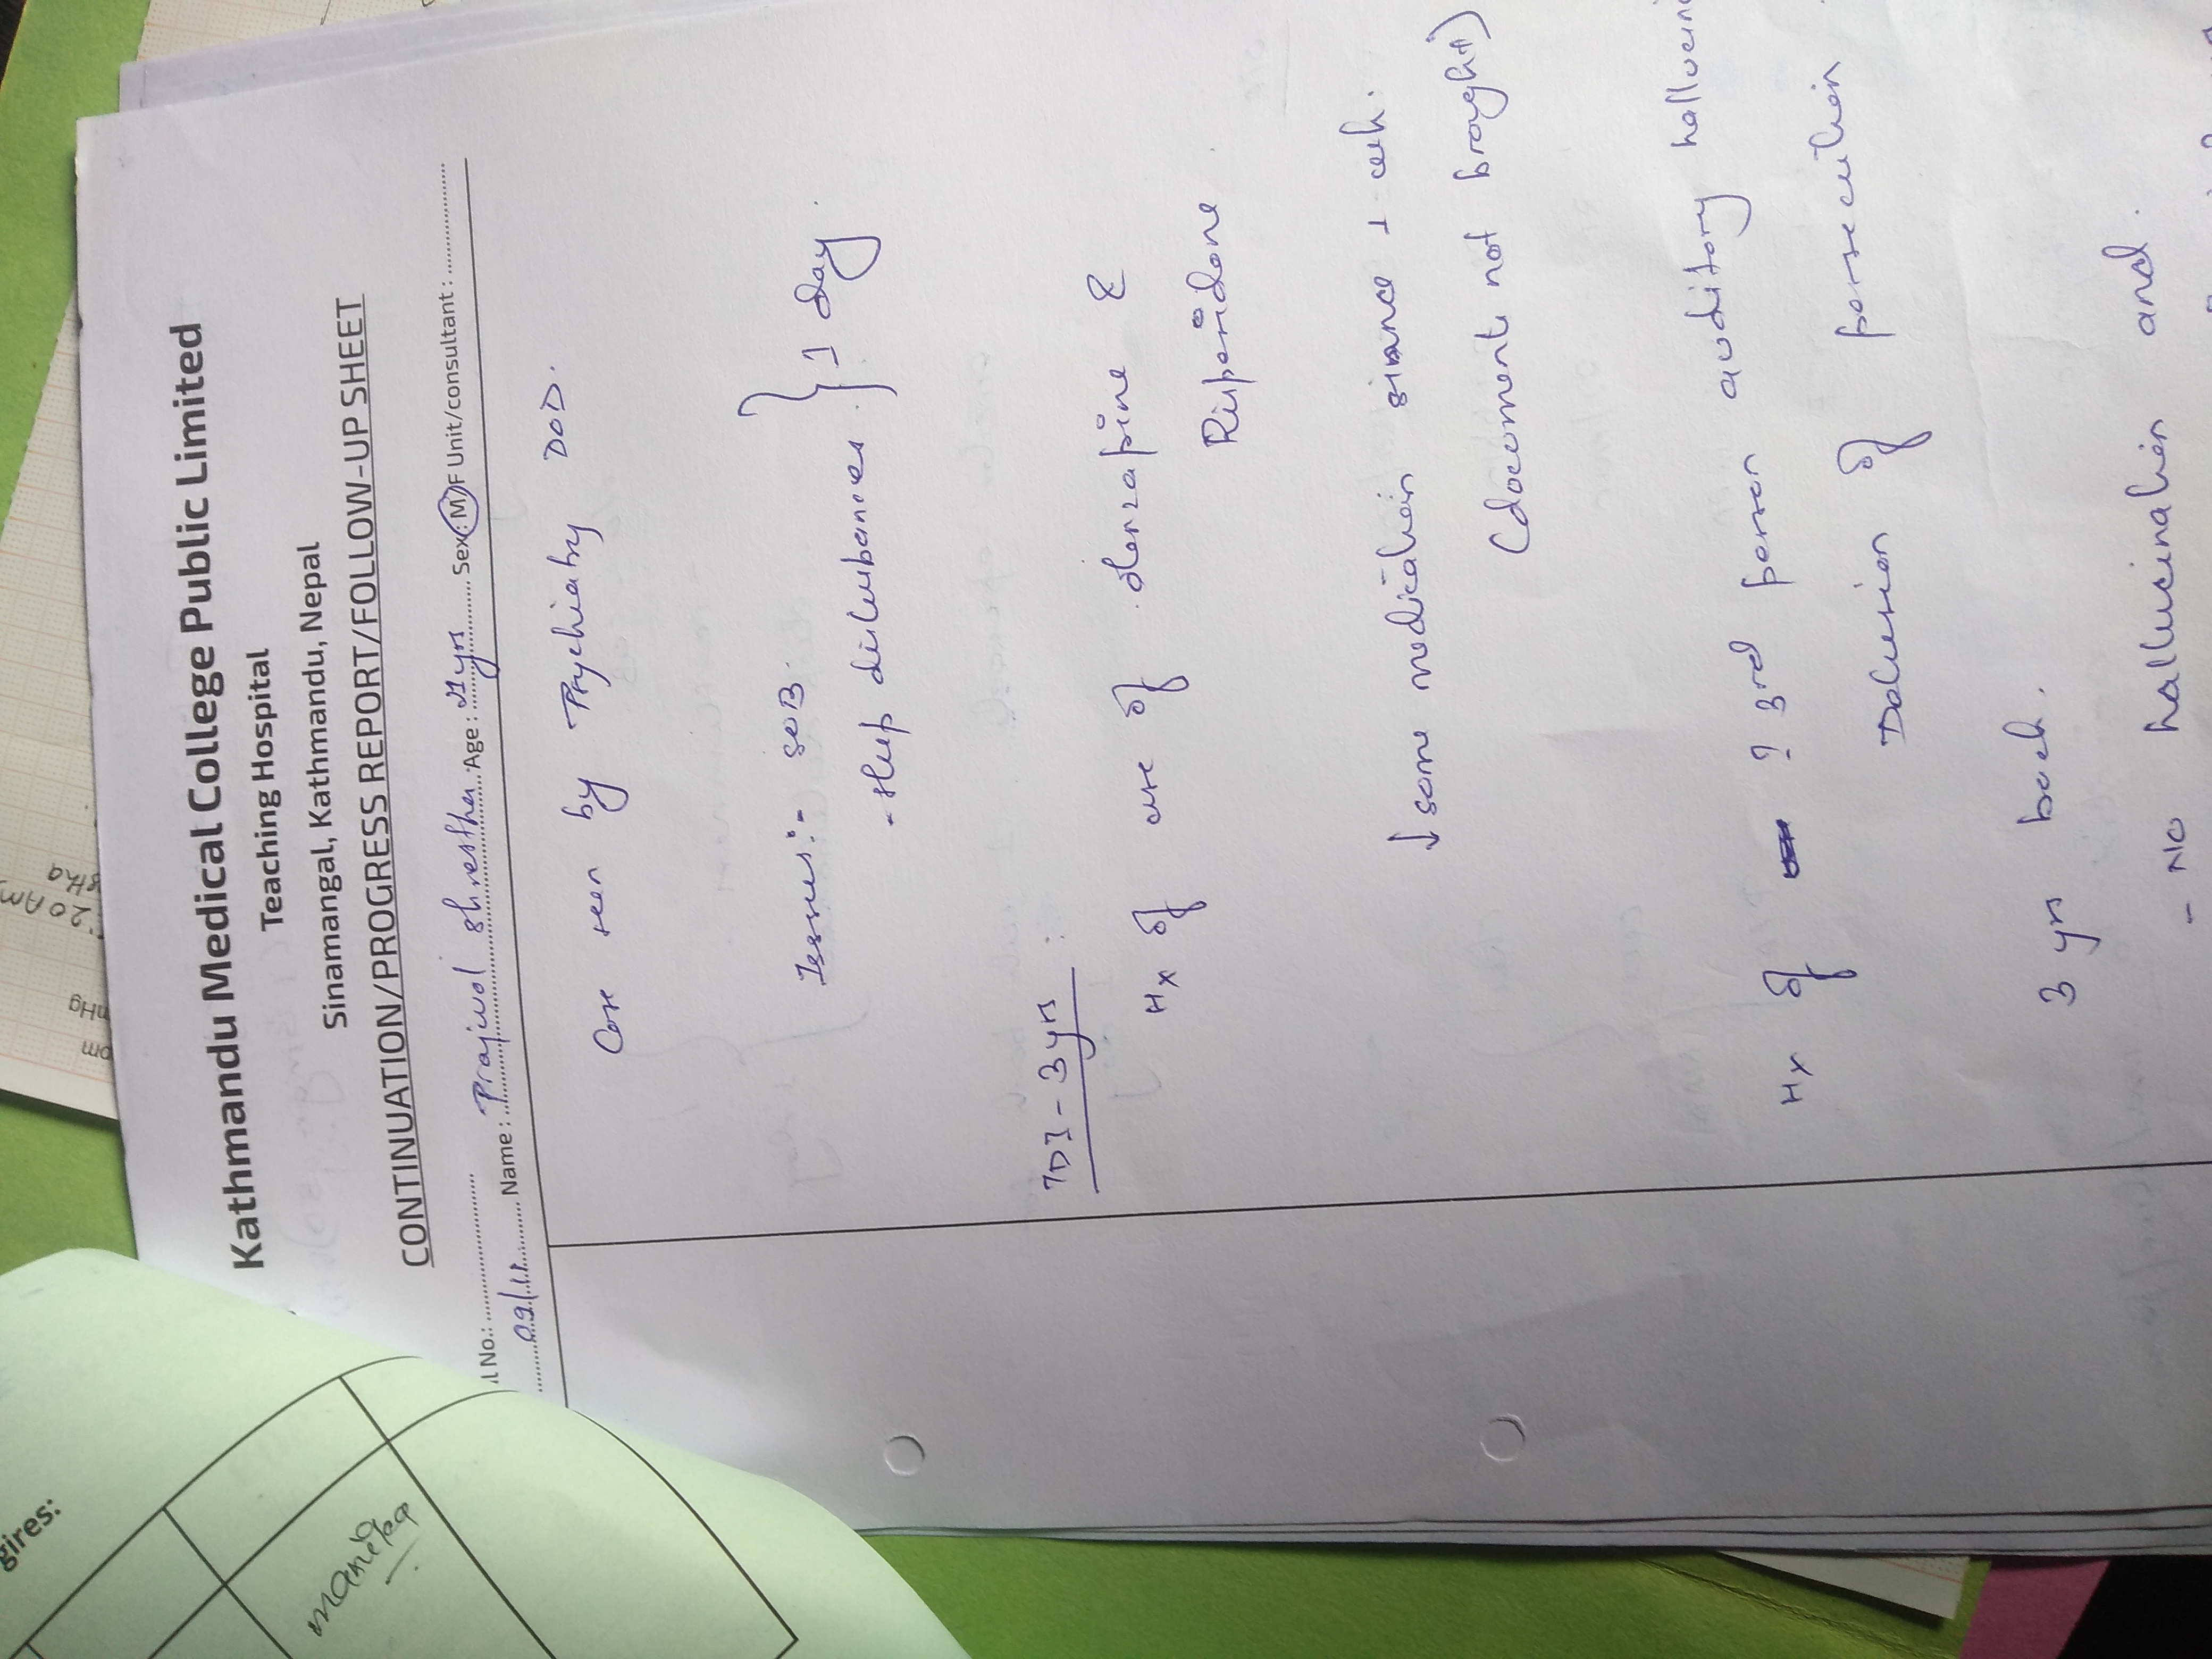 Kathmandu Medical College Public Limited
Teaching Hospital
Sinamangal, Kathmandu, Nepal
CONTINUATION/PROGRESS REPORT/FOLLOW-UP SHEET
l No.:
Name : Prajwol Shrestha Age : 21yrs Sex: M/F Unit/consultant :
Case seen by Psychiatry DOD.
Issues:- SOB.
- sleep disturbances. } 1 day.
TDI - 3 yrs :
Hx of use of Olanzapine &
Risperidone.
↓ some medication since 1
(documents not brought)
Hx of ? 3rd person auditory halluci
Delusion of persecution
3 yrs back.
- No hallucination and.
gires:
pm
mHg
:20 AM
stha